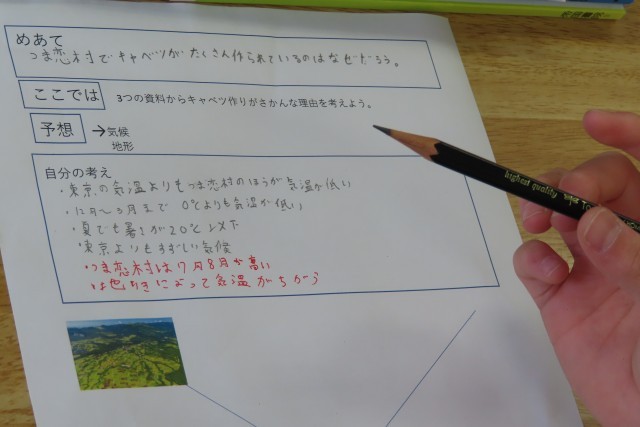 めあて
つま恋村でキャベツがたくさん作られているのはなぜだろう。
ここでは
3つの資料からキャベツ作りがさかんな理由を考えよう。
予想
→気候
地形
自分の考え
・東京の気温よりもつま恋村のほうが気温が低い
・12月〜3月まで 0℃よりも気温が低い
・夏でも暑さが20℃以下
・東京よりもすずしい気候
・つま恋村は7月8月が高い
によって気温がちがう
highest quality